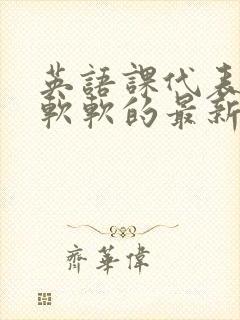 英語課代表
軟軟的最新
齊華偉